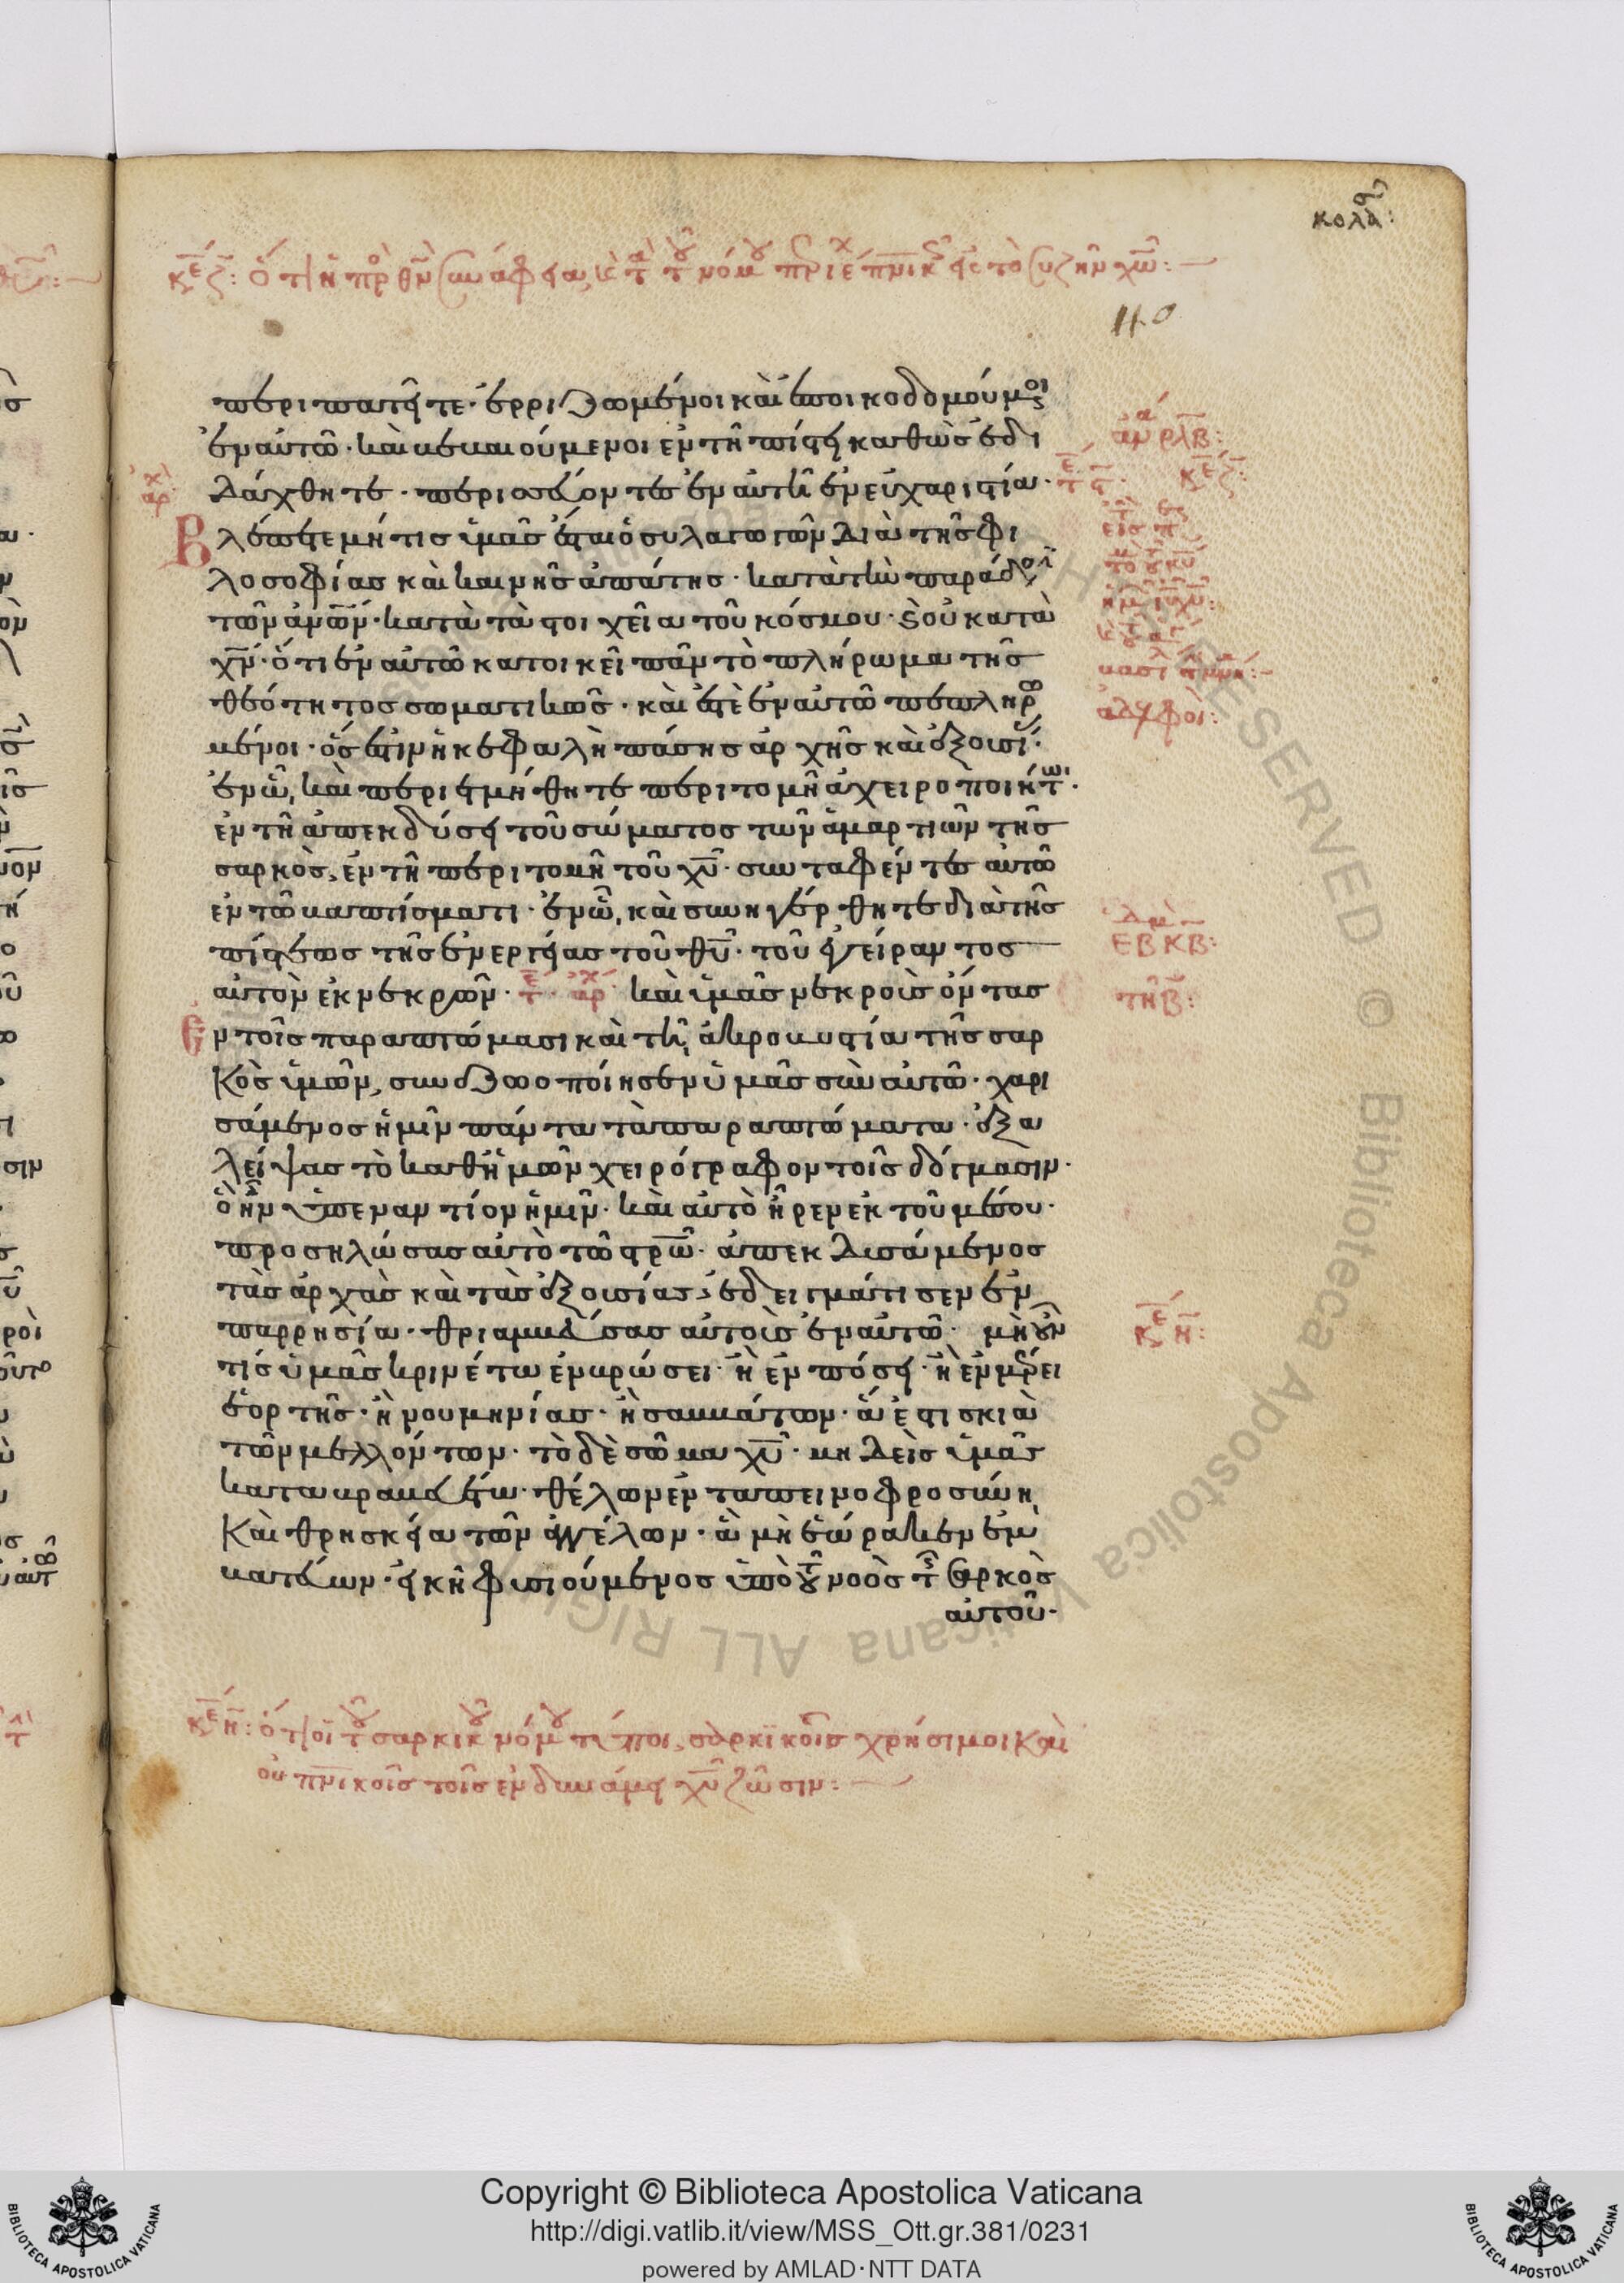 κολα
110
περιπατεῖτε· ἐρριζωμένοι καὶ ἐποικοδομούμενοι
ἐν αὐτῶ· καὶ βεβαιούμενοι ἐν τῆ πίστει καθὼς ἐδι
δάχθητε· περισσεύοντες ἐν αὐτῆ ἐν εὐχαριστία·
Βλέπετε μή τις ὑμᾶς ἔσται ὁ συλαγωγῶν διὰ τῆς φι
λοσοφίας καὶ κενῆς ἀπάτης· κατὰ τὴν παράδοσιν
τῶν ἀν̅ω̅ν· κατὰ τὰ στοιχεῖα τοῦ κόσμου· καὶ οὐ κατὰ
χ̅ν· ὅτι ἐν αὐτῶ κατοικεῖ πᾶν τὸ πλήρωμα τῆς
θεότητος σωματικῶς· καὶ ἐστὲ ἐν αὐτῶ πεπληρω
μένοι· ὅς ἐστιν ἡ κεφαλὴ πάσης ἀρχῆς καὶ ἐξουσίας·
ἐν ὧ καὶ περιετμήθητε περιτομῆ ἀχειροποιήτωι·
ἐν τῆ ἀπεκδύσει τοῦ σώματος τῶν ἁμαρτιῶν τῆς
σαρκὸς, ἐν τῆ περιτομῆ τοῦ χ̅υ· συνταφέντες αὐτῶ
ἐν τῶ βαπτίσματι· ἐν ὧ καὶ συνηγέρθητε διὰ τῆς
πίστεως τῆς ἐνεργείας τοῦ θ̅υ· τοῦ ἐγείραντος
αὐτὸν ἐκ νεκρῶν· τε αρχ καὶ ὑμᾶς νεκροὺς ὄντας
ἐν τοῖς παραπτώμασι καὶ τῆ ἀκροβυστία τῆς σαρ
κὸς ὑμῶν, συνεζωοποίησεν ὑμᾶς σὺν αὐτῶ· χαρι
σάμενος ἡμῖν πάντα τὰ παραπτώματα· ἐξα
λείψας τὸ καθ' ἡμῶν χειρόγραφον τοῖς δόγμασιν·
ὃ ἦν ὑπεναντίον ἡμῖν· καὶ αὐτὸ ἦρεν ἐκ τοῦ μέσου·
προσηλώσας αὐτὸ τῶ στ̅ρ̅ω· ἀπεκδυσάμενος
τὰς ἀρχὰς καὶ τὰς ἐξουσίας, ἐδειγμάτισεν ἐν
παρρησία· θριαμβεύσας αὐτοὺς ἐν αὐτῶ· μὴ οὖν
τίς ὑμᾶς κρινέτω ἐν βρώσει· ἢ ἐν πόσει· ἢ ἐν μέρει
ἑορτῆς· ἢ νουμηνίας· ἢ σαββάτων· ἅ ἐστι σκιὰ
τῶν μελλόντων· τὸ δὲ σῶμα χ̅υ· μηδεὶς ὑμᾶς
καταβραβευέτω· θέλων ἐν ταπεινοφροσύνη
καὶ θρησκεία τῶν ἀγγέλων· ἃ μὴ ἑώρακεν ἐμ
βατεύων· εἰκῆ φυσιούμενος ὑπὸ τοῦ νοὸς τῆς σαρκὸς
αὐτοῦ·
κε η: ὅτι οἱ τοῦ σαρκικοῦ νόμου τύποι, σαρκϊκοῖς χρήσιμοι καὶ
οὐ πν̅ικοῖς τοῖς ἐν δυνάμει χ̅υ ζῶσιν:
κε η:
ΕΒ ΚΒ:
ἀδελφοὶ: